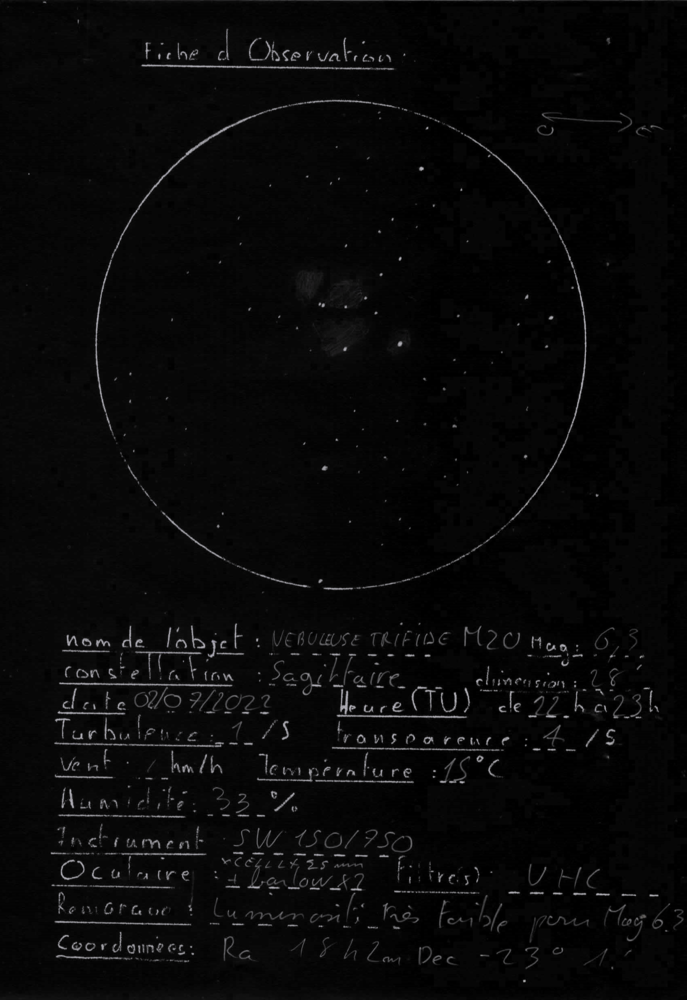 Fiche d Observation.
O E
nom de l'objet : NEBULEUSE TRIFIDE M20 Mag: 6,3
constellation : Sagittaire dimension: 28'
date 02/07/2022 Heure (TU) de 22 h à 23h
Turbulence : 1 /5 transparence : 4 /5
Vent : / km/h Température : 15°C
Humidité : 33 %
Instrument SW 150/750
Oculaire : 25 mm
+ barlow X2 Filtre(s): UHC
Remarque : Luminosité très faible pour Mag 6.3
Coordonnées: Ra 18 h 2m Dec -23°